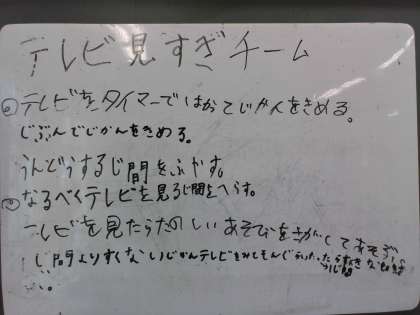 テレビ見すぎチーム
①テレビをタイマーではかってじかんをきめる。
じぶんでじかんをきめる。
うんどうするじ間をふやす。
②なるべくテレビを見るじ間をへらす。
テレビを見たらたのしいあそびをさがしてあそぶ。
じ間よりすくないじかんテレビを